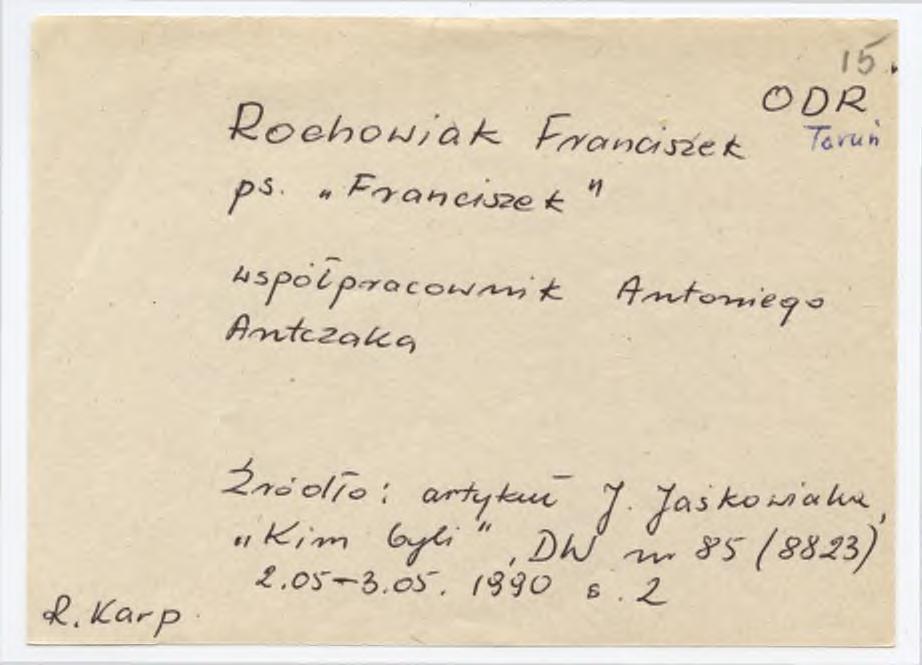 15.
ODR
Toruń
Rochowiak Franciszek
ps. „Franciszek"
współpracownik Antoniego
Antczaka
Źródło: artykuł J. Jaśkowiaka,
„Kim byli", DW nr 85 (8823)
2.05-3.05. 1990 s. 2
R. Karp.